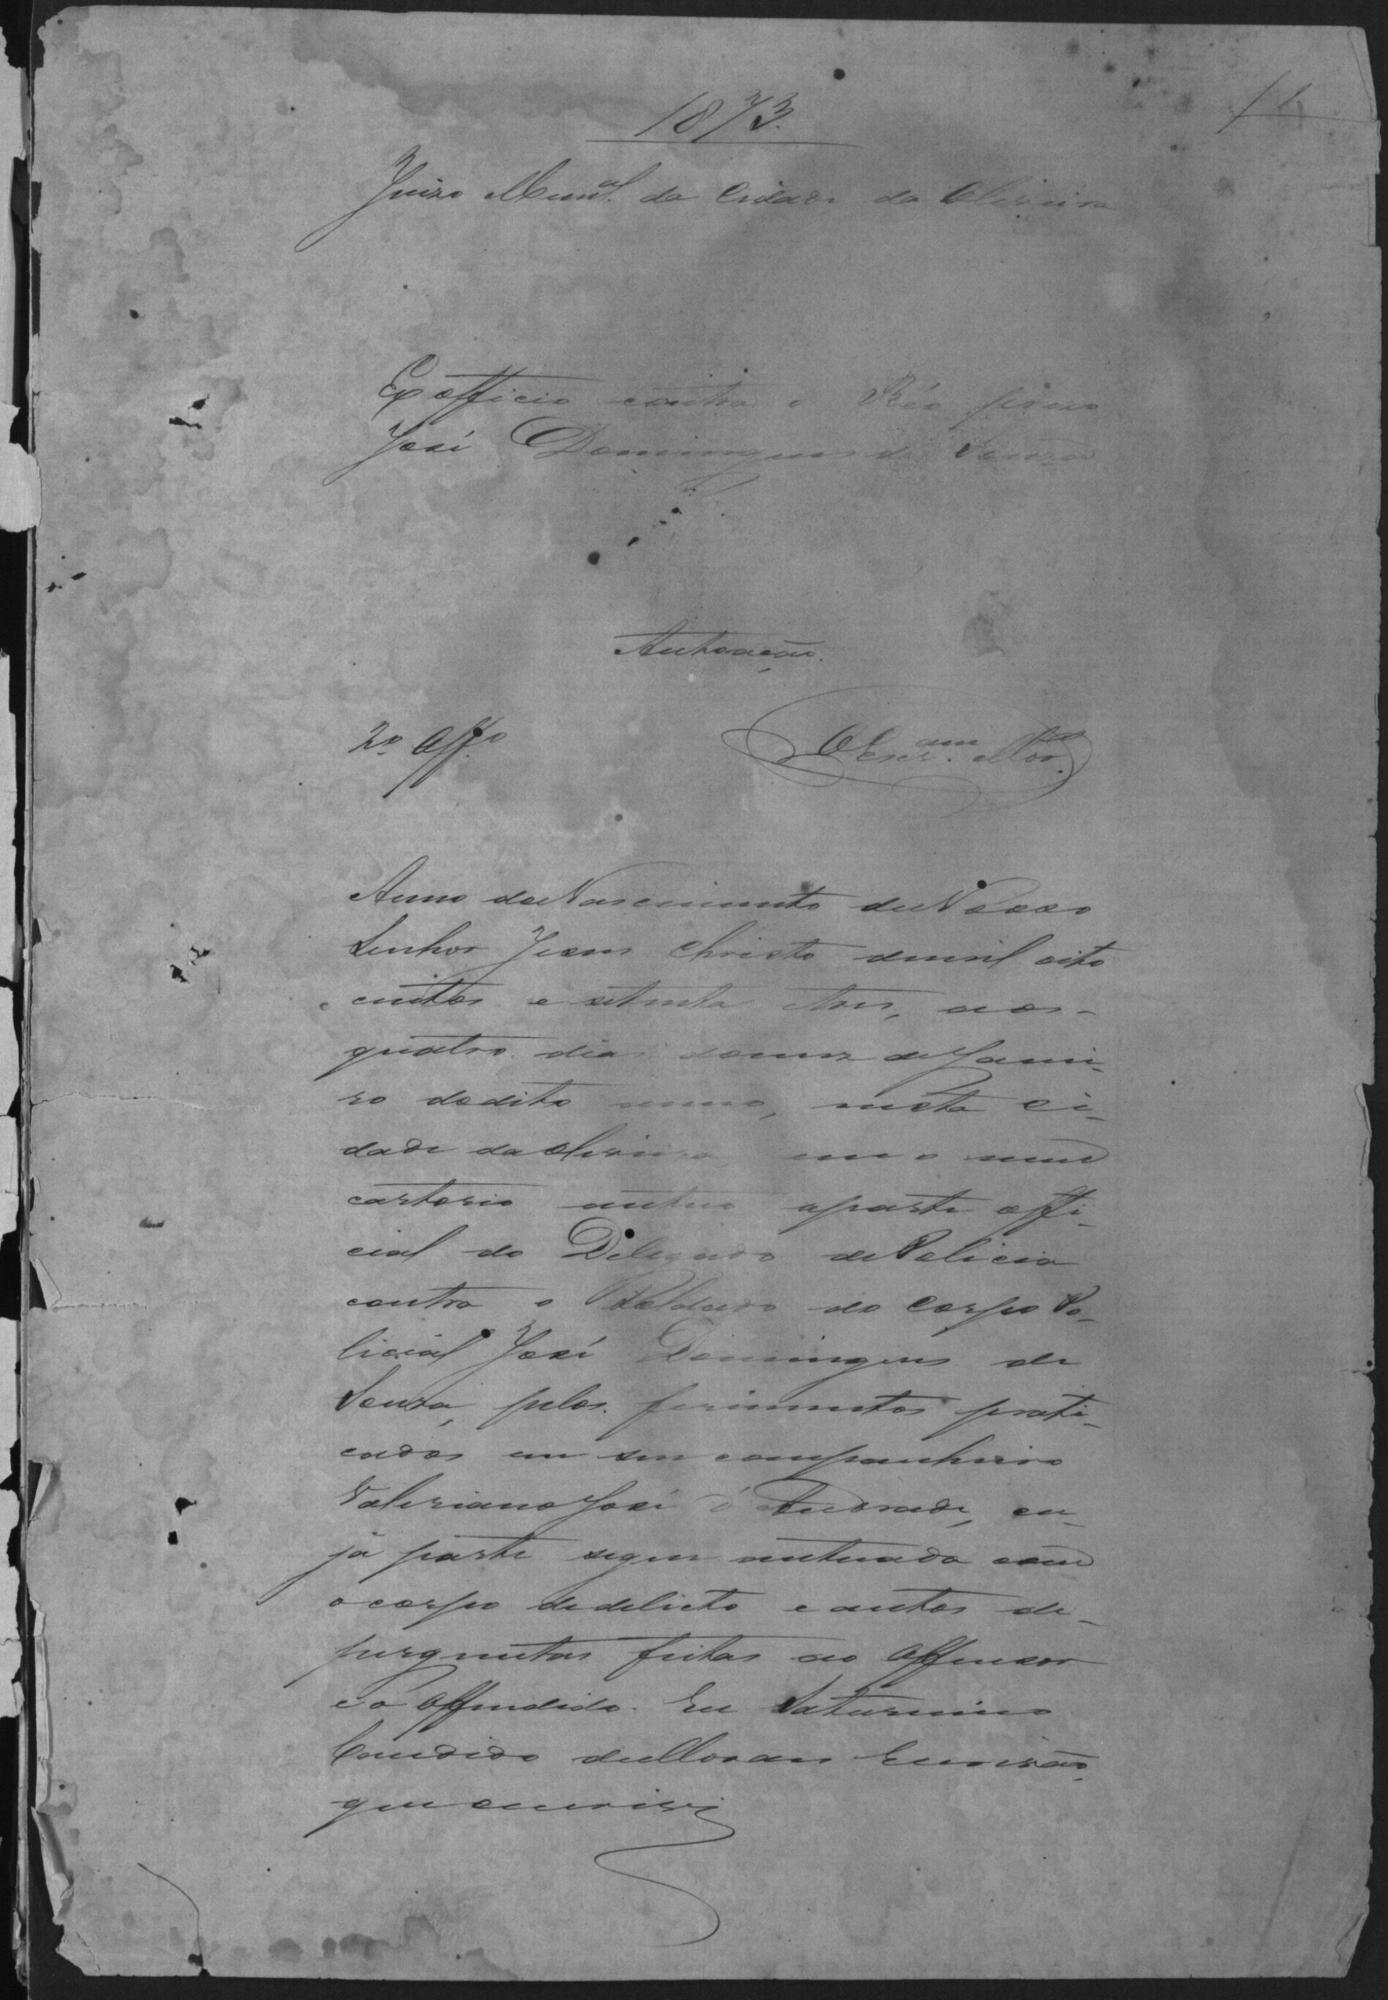 1873.
Juizo Mun.al da Cidade da Oliveira
Ex officio contra o Réo prezo
José Domingues de Souza
Authoação.
2º Off.º
O Escr.am Mor.
Anno do Nascimento de Nosso
Senhor Jesus Christo de mil oito
centos e setenta e tres, aos
quatro dias do mez de Janei-
ro do dito anno, nesta ci-
dade da Oliveira em o meu
cartorio autuo a parte offi-
cial do Delegado de Policia
contra o Soldado do Corpo Po-
licial José Domingues de
Souza, pelos ferimentos prati-
cados em seu companheiro
Valeriano José d'Andrade, cu-
ja parte segue autuada com
o corpo de delicto e autos de
perguntas feitas ao Offensor
e o Offendido. Eu Saturnino
Candido de Moraes Escrivão,
que escrevi